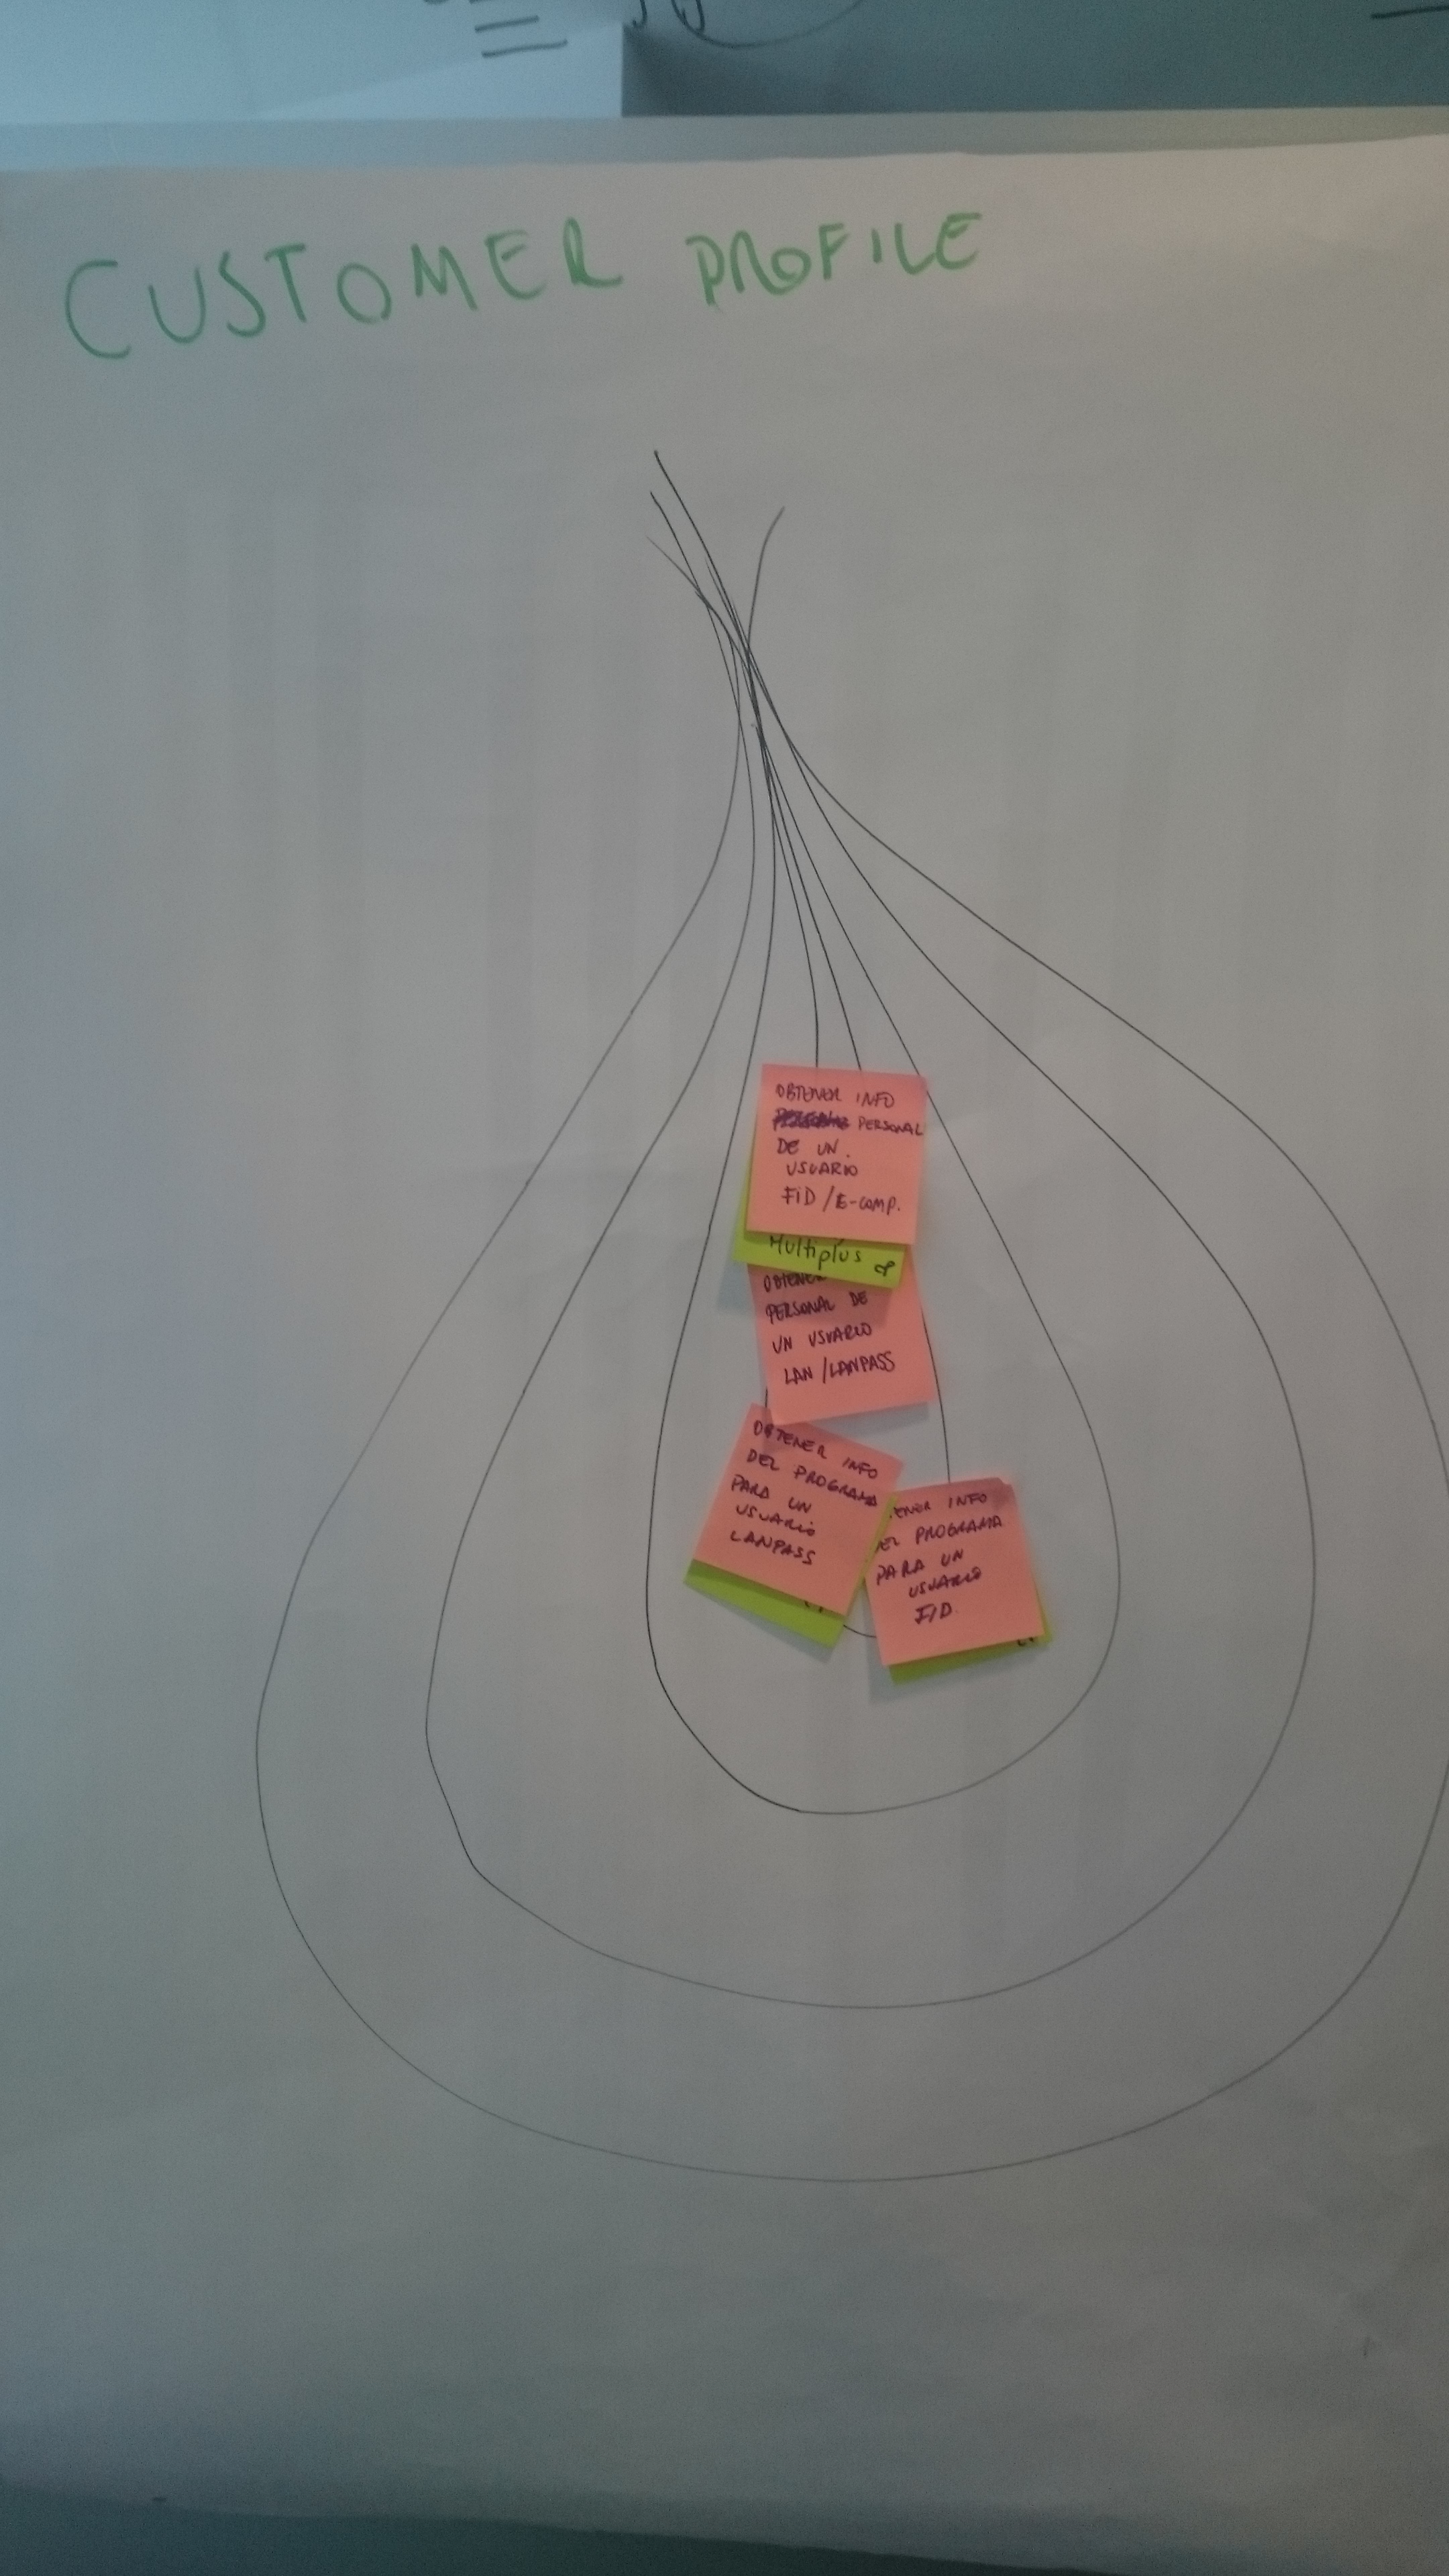 CUSTOMER PROFILE
OBTENER INFO
PERSONAL
DE UN
USUARIO
FID/E-COMP.
Multiplus
OBTENER
PERSONAL DE
UN USUARIO
LAN/LANPASS
OBTENER INFO
DEL PROGRAMA
PARA UN
USUARIO
LANPASS
INFO
PROGRAMA
PARA UN
USUARIO
FID.